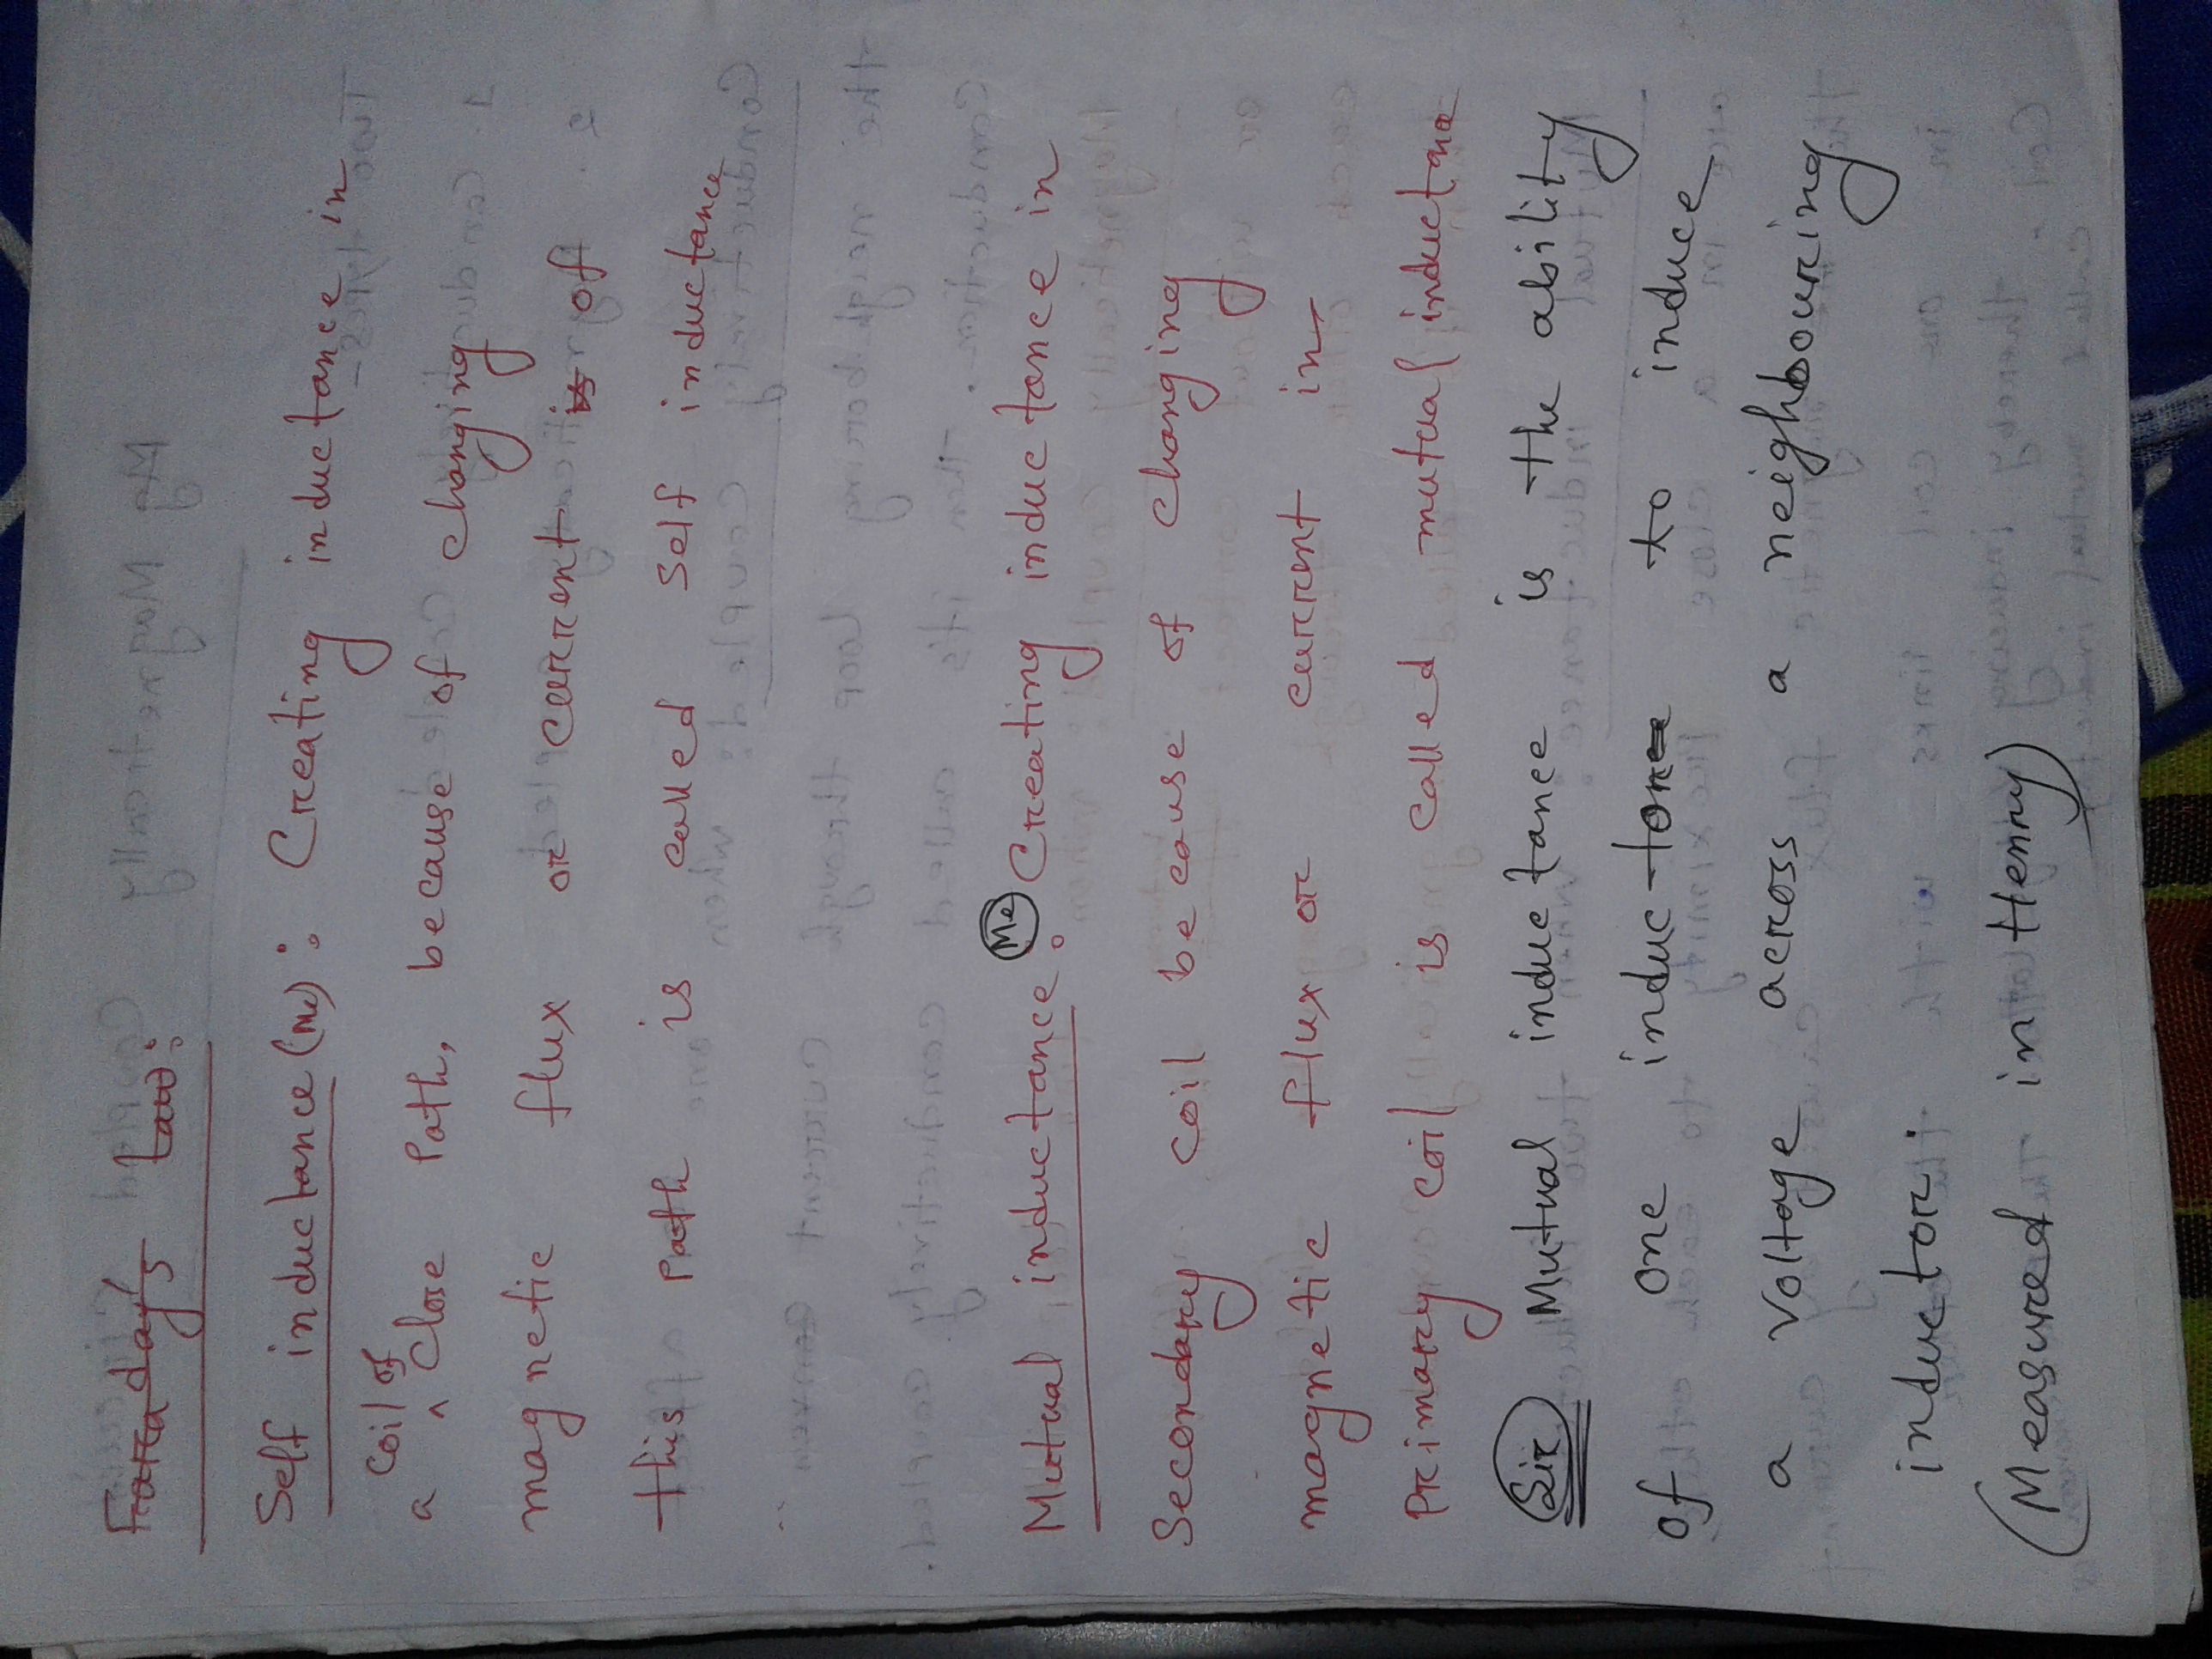 Faraday's Law:
Self inductance (me): Creating inductance in
a coil of close path, because of changing
magnetic flux or current is of
this path is called self inductance
Mutual inductance: Me Creating inductance in
Secondary coil because of changing
magnetic flux or current in
primary coil is called mutual inductance
Sir Mutual inductance is the ability
of one inductor to induce
a voltage across a neighbouring
inductor.
(Measured in Henry)